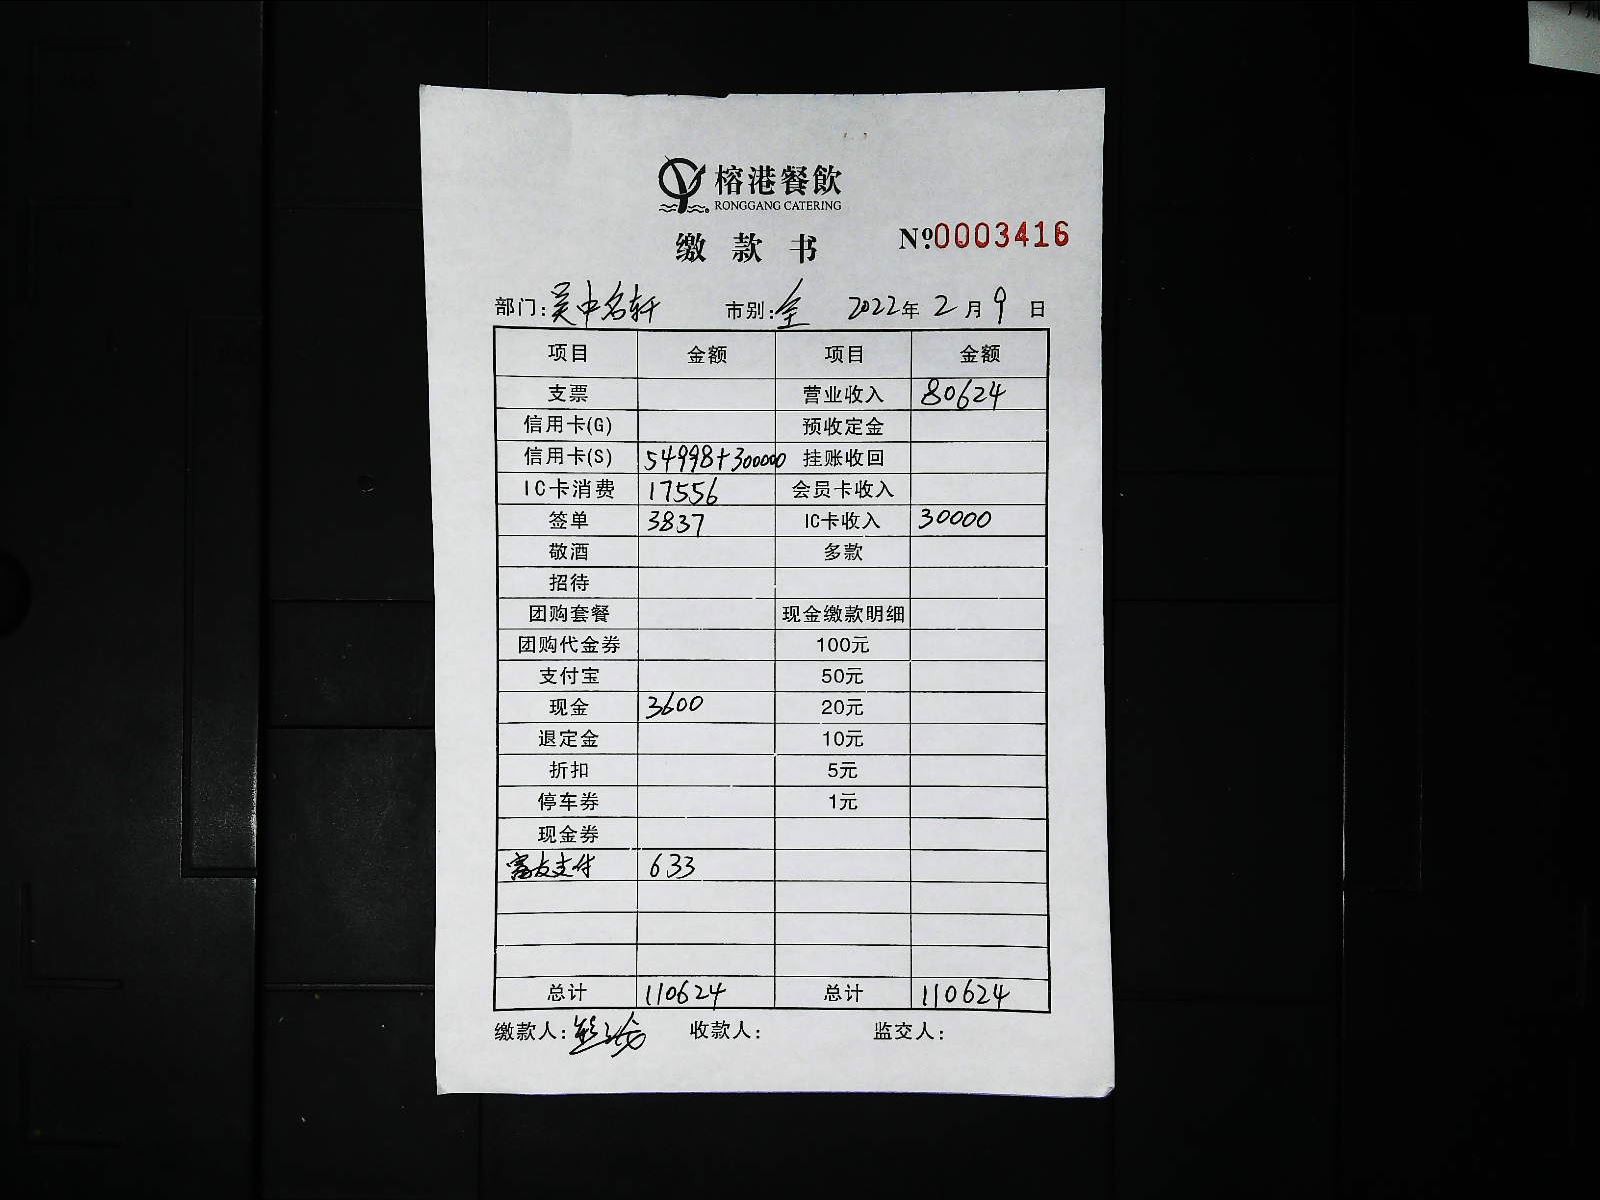 榕港餐飲
RONGGANG CATERING
缴款书
№0003416
部门:吴中名轩 市别:全 2022年2月9日
项目 金额 项目 金额
支票 营业收入 80624
信用卡(G) 预收定金
信用卡(S) 54998+300000 挂账收回
IC卡消费 17556 会员卡收入
签单 3837 IC卡收入 30000
敬酒 多款
招待
团购套餐 现金缴款明细
团购代金券 100元
支付宝 50元
现金 3600 20元
退定金 10元
折扣 5元
停车券 1元
现金券
富友支付 633
总计 110624 总计 110624
缴款人: 收款人: 监交人: